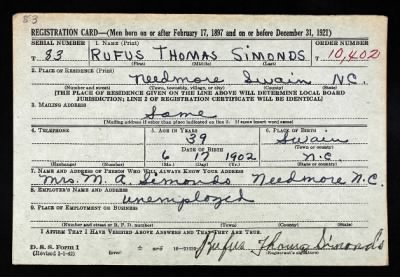 83
REGISTRATION CARD—(Men born on or after February 17, 1897 and on or before December 31, 1921)
SERIAL NUMBER 1. NAME (Print) ORDER NUMBER
T 83 RUFUS THOMAS SIMONDS 10,402
(First) (Middle) (Last)
2. PLACE OF RESIDENCE (Print)
Needmore Swain N.C.
(Number and street) (Town, township, village, or city) (County) (State)
[THE PLACE OF RESIDENCE GIVEN ON THE LINE ABOVE WILL DETERMINE LOCAL BOARD
JURISDICTION; LINE 2 OF REGISTRATION CERTIFICATE WILL BE IDENTICAL]
3. MAILING ADDRESS
Same
[Mailing address if other than place indicated on line 2. If same insert word same]
4. TELEPHONE 5. AGE IN YEARS 6. PLACE OF BIRTH
39 Swain
DATE OF BIRTH (Town or county)
6 17 1902 N.C.
(Exchange) (Number) (Mo.) (Day) (Yr.) (State or country)
7. NAME AND ADDRESS OF PERSON WHO WILL ALWAYS KNOW YOUR ADDRESS
Mrs. M. A. Simonds Needmore N.C.
8. EMPLOYER'S NAME AND ADDRESS
unemployed
9. PLACE OF EMPLOYMENT OR BUSINESS
(Number and street or R. F. D. number) (Town) (County) (State)
I AFFIRM THAT I HAVE VERIFIED ABOVE ANSWERS AND THAT THEY ARE TRUE.
D. S. S. Form 1
(Revised 1-1-42) Rufus Thomas Simonds
(Registrant's signature)